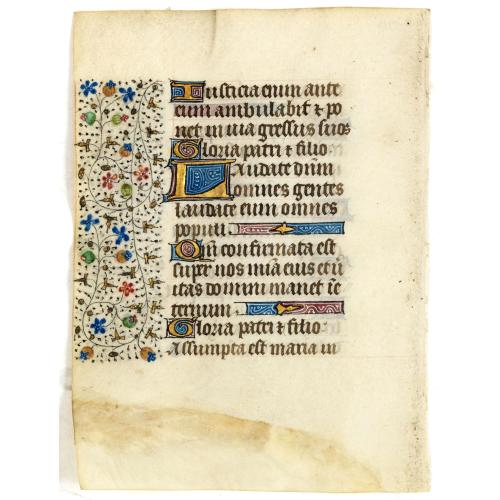 Iusticia eum ante
eum ambulabit & po
net in uia gressus suos
Gloria patri & filio
Laudate dn̄m
omnes gentes
laudate eum omnes
populi
Qm̄ confirmata est
super nos mīa eius et uē
itas domini manet īe
ternum
Gloria patri & filio
Assumpta est maria in